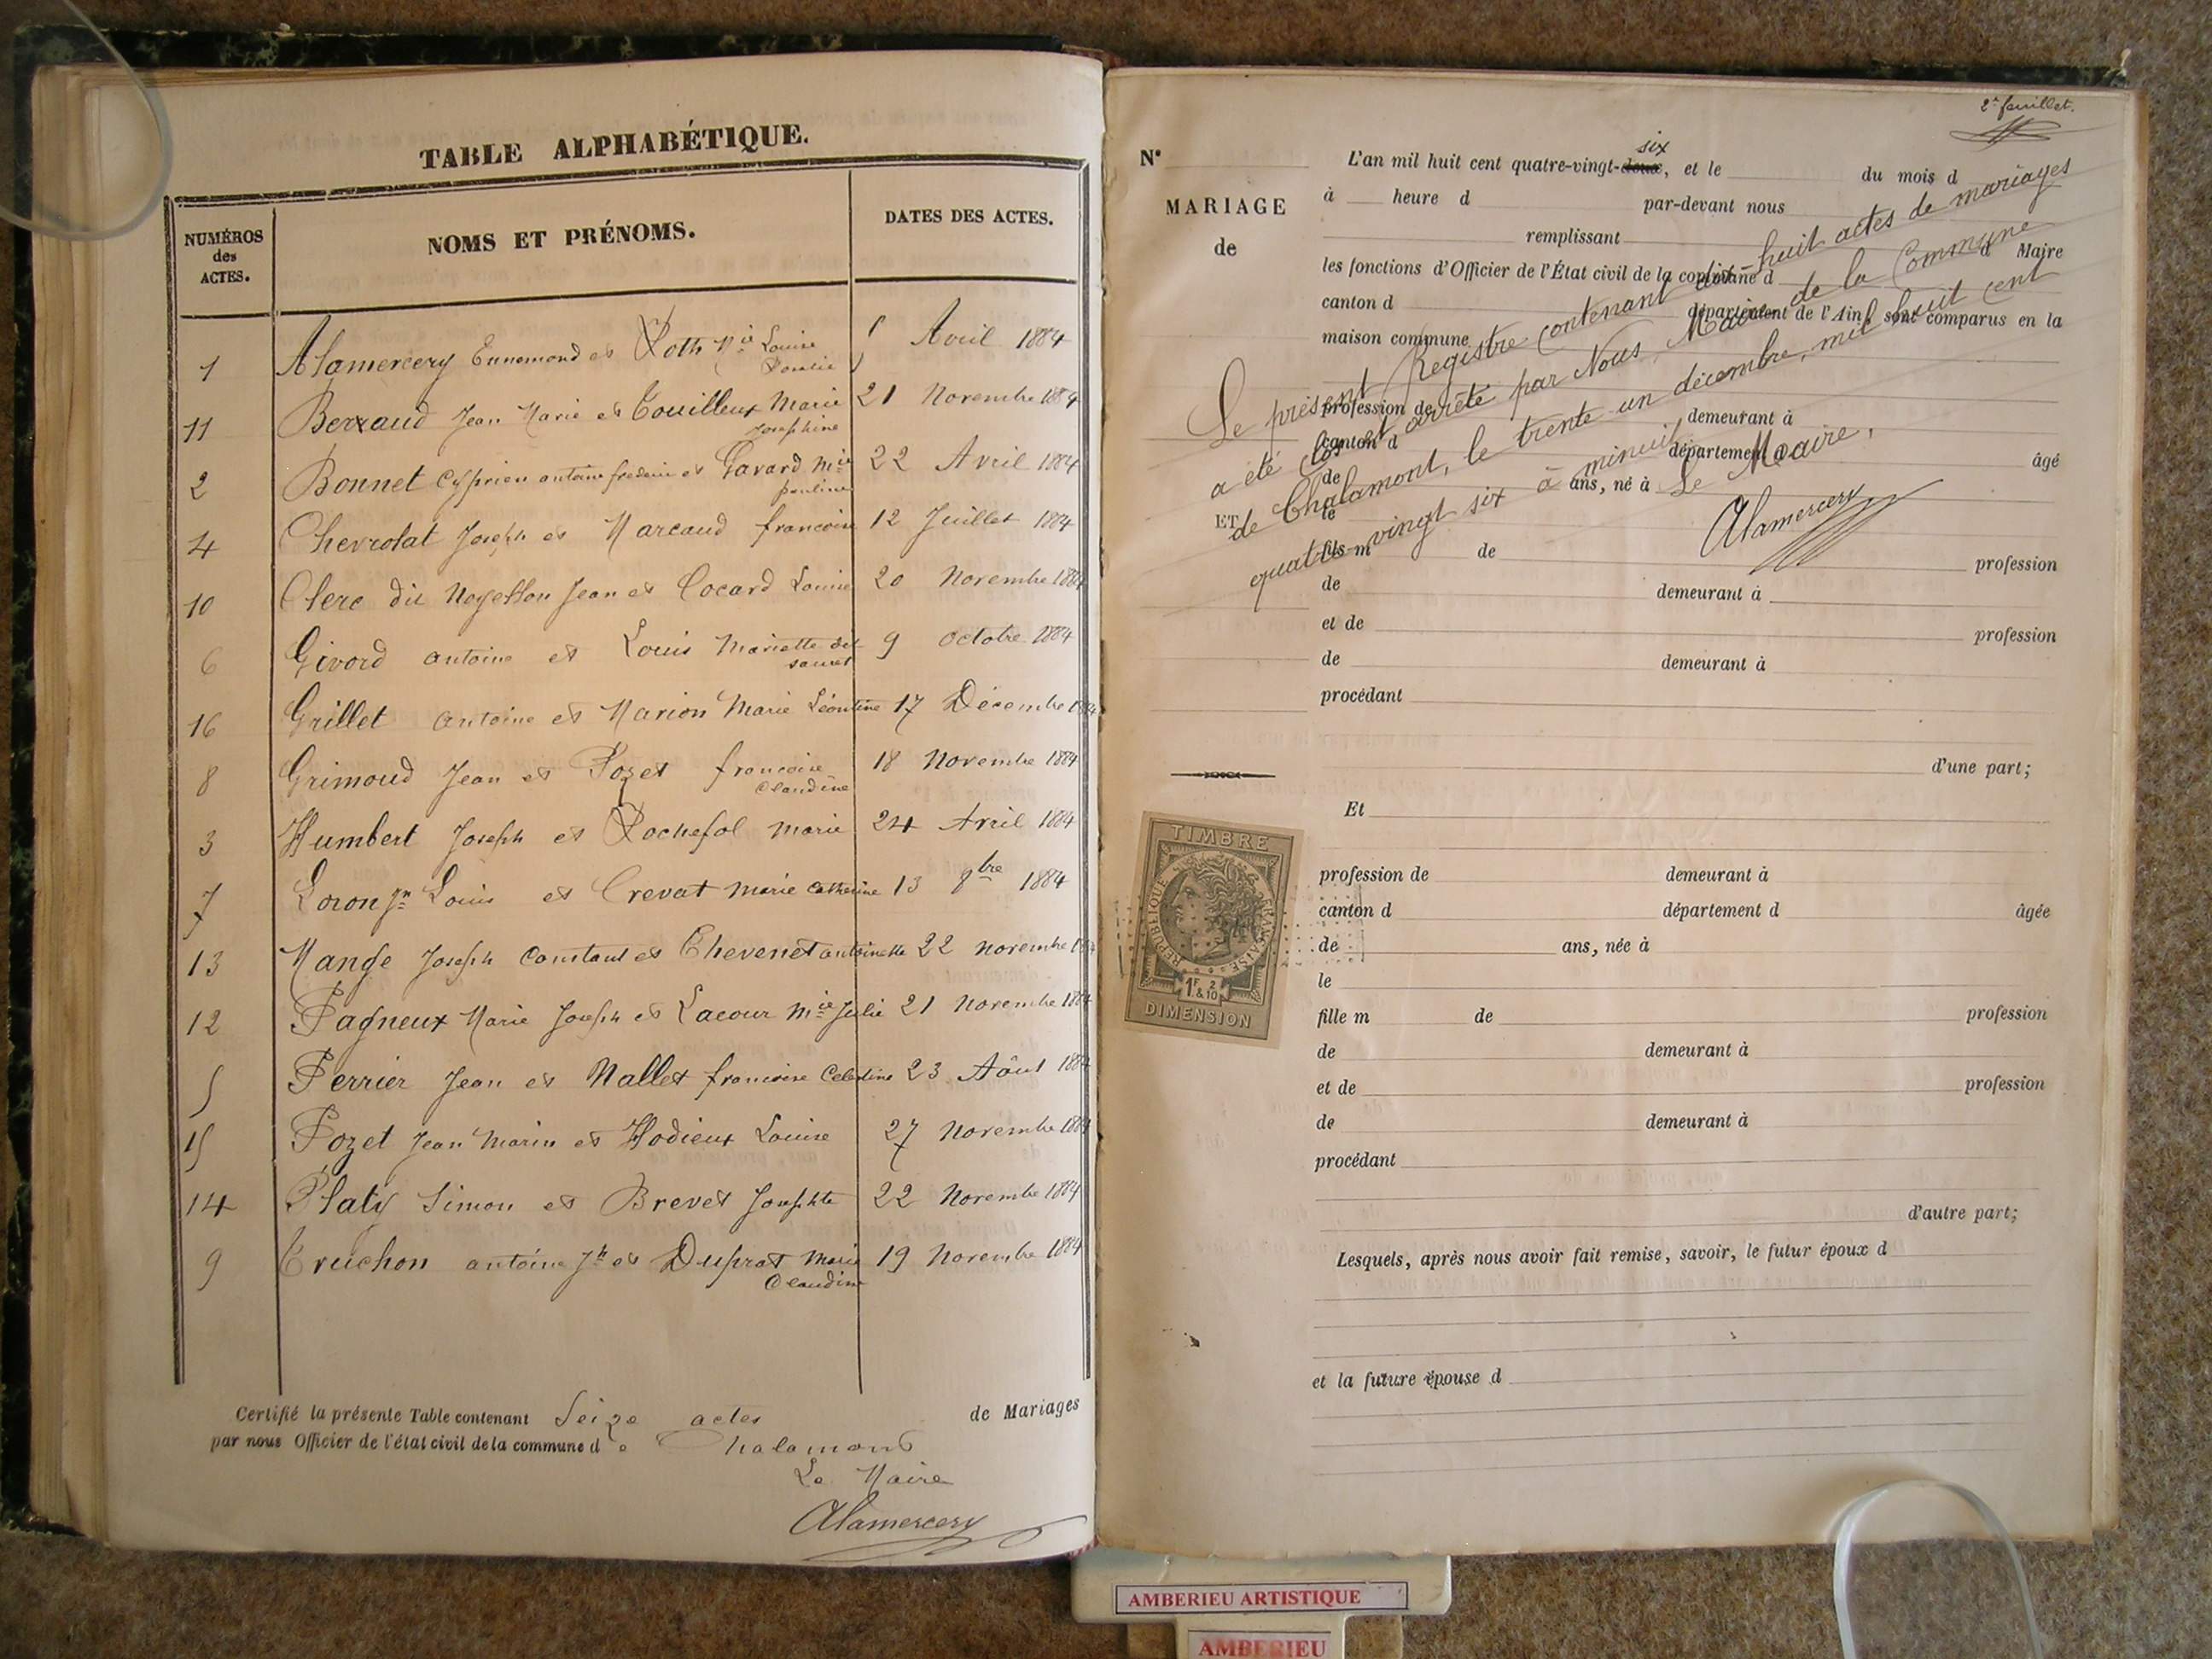 TABLE ALPHABÉTIQUE.
NUMÉROS des ACTES.
NOMS ET PRÉNOMS.
DATES DES ACTES.
1 Alamercery Ennemond et Roth Mie Louise Avril 1884
11 Berraud Jean Marie et Touilleux Marie Josephine 21 Novembre 1884
2 Bonnet Cyprien antoine frederic et Gavard Mie pauline 22 Avril 1884
4 Chevrolat Joseph et Marcaud francoise 12 Juillet 1884
10 Clerc dit Jean et Cocard Louise 20 Novembre 1884
6 Givord antoine et Louis Mariette dit 9 octobre 1884
16 Grillet antoine et Marion Marie Léontine 17 Décembre 1884
8 Grimoud Jean et Pozet francoise Claudine 18 Novembre 1884
3 Humbert Joseph et Rochefol Marie 24 Avril 1884
7 Loron Jn Louis et Crevat Marie Catherine 13 8bre 1884
13 Mange Joseph Constant et Thevenet antoinette 22 novembre 1884
12 Pagneux Marie Joseph et Lacour Mie Julie 21 Novembre 1884
5 Perrier Jean et Mallet francoise Celestine 23 Aôut 1884
15 Pozet Jean Marin et Hodieux Louise 27 Novembre 1884
14 Platy Simon et Brevet Josephte 22 Novembre 1884
9 Truchon antoine Jh et Duprat Marie Claudine 19 Novembre 1884
Certifié la présente Table contenant Seize actes de Mariages
par nous Officier de l'état civil de la commune de Chalamont
Le Maire
Alamercery
2e feuillet.
N°
MARIAGE
de
ET
six
L'an mil huit cent quatre-vingt-deux, et le du mois d
à heure d par-devant nous
remplissant
les fonctions d'Officier de l'État civil de la commune d
canton d département de l'Ain, sont comparus en la
maison commune d Maire
profession de demeurant à
canton d département d âgé
de ans, né à
le
fils m de profession
de demeurant à
et de profession
de demeurant à
procédant
d'une part;
Le présent Registre contenant dix-huit actes de mariages
a été clos et arrêté par Nous, Maire de la Commune
de Chalamont, le trente un décembre, mil huit cent
quatre-vingt six à minuit
Le Maire,
Alamercery
TIMBRE
RÉPUBLIQUE FRANÇAISE
1F & 2/10
DIMENSION
Et
profession de demeurant à
canton d département d âgée
de ans, née à
le
fille m de profession
de demeurant à
et de profession
de demeurant à
procédant
d'autre part;
Lesquels, après nous avoir fait remise, savoir, le futur époux d
et la future épouse d
AMBERIEU ARTISTIQUE
AMBERIEU